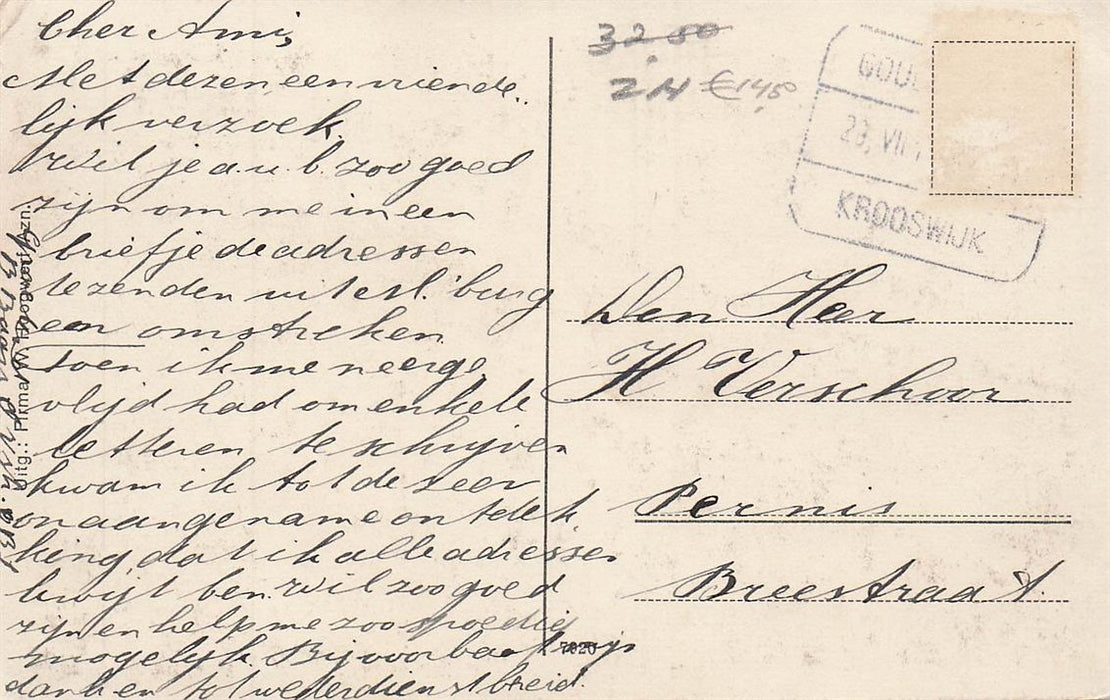 Cher Ami,
Met dezen een vriende..
lijk verzoek.
Wil je a.u.b. zoo goed
zijn om me in een
briefje de adressen
te zenden uit esl.'burg
en omstreken
toen ik me neerge
vlijd had om enkele
letteren te schrijven
kwam ik tot de zeer
onaangename ontdek
king, dat ik alle adressen
kwijt ben. wil zoo goed
zijn en help me zoo spoedig
mogelijk. Bij voorbaat mijn
dank en tot wederdienst bereid.
Uitg.: Firma W. Hoogwerf Gzn.
7925
32.50
2H €14,50
GOU
23, VII
KROOSWIJK
Den Heer
H Verschoor
Pernis
Breestraat.